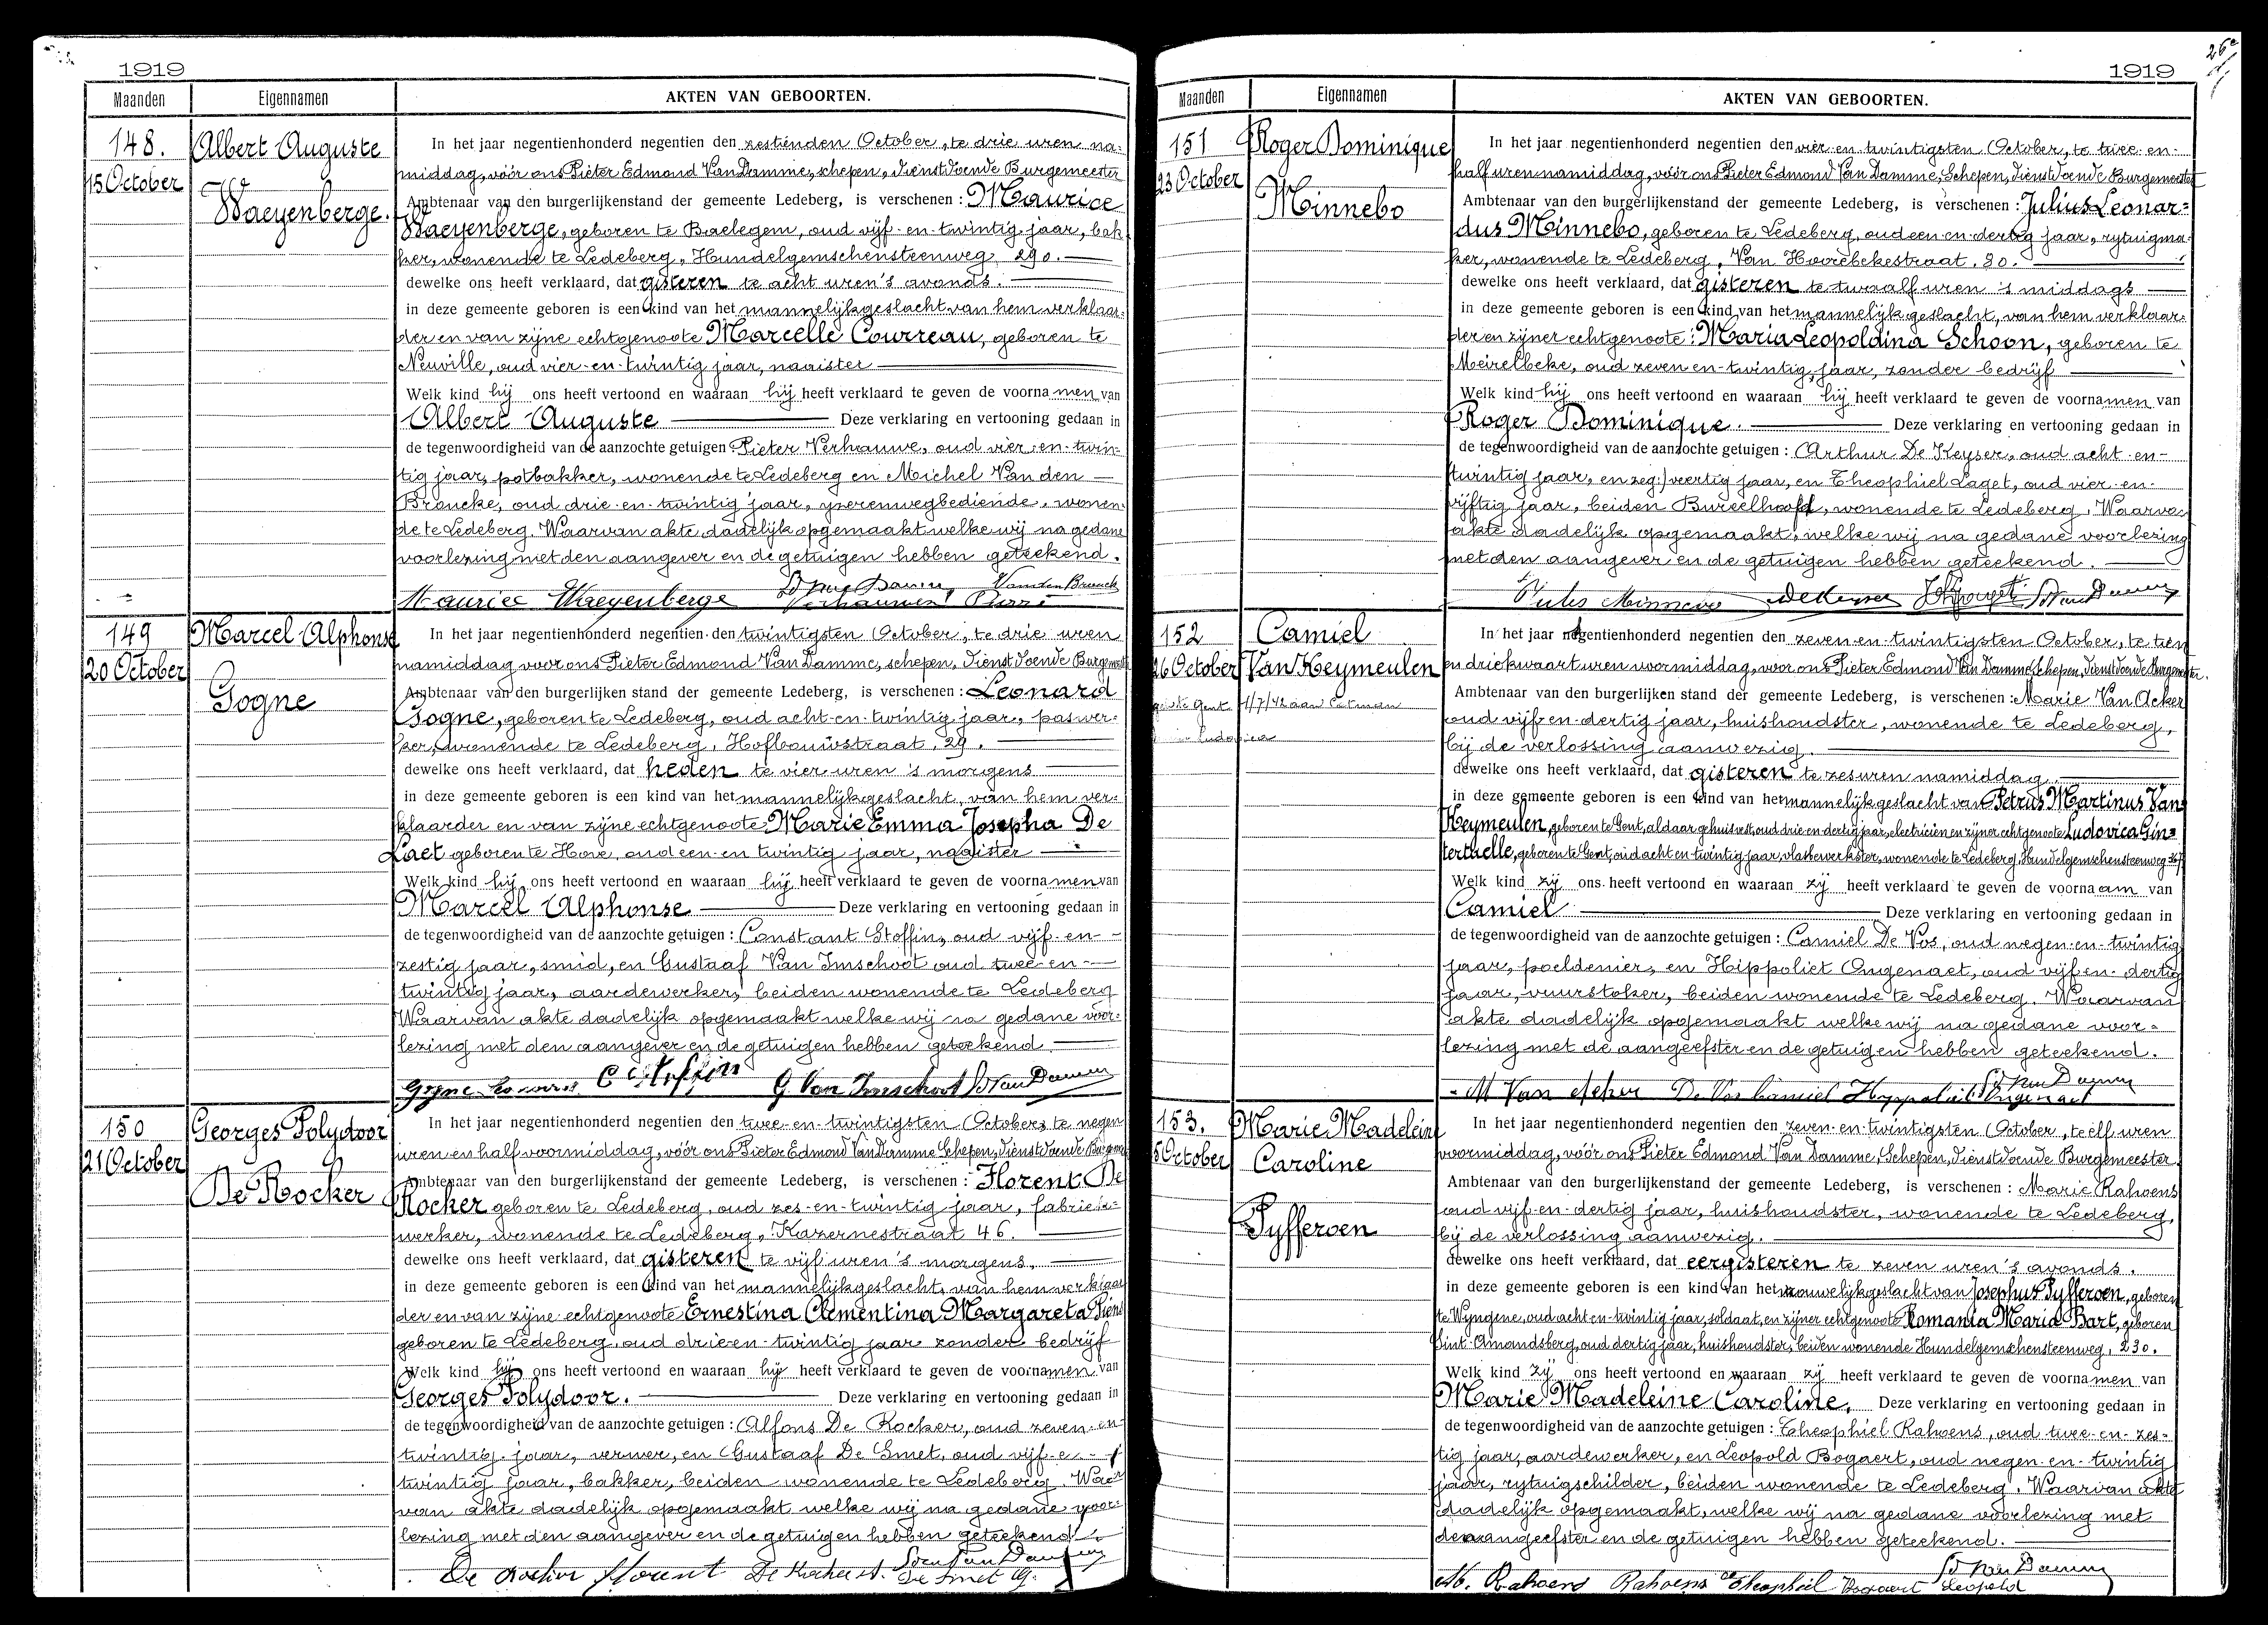 1919
Maanden
Eigennamen
AKTEN VAN GEBOORTEN.
148.
15 October
Albert Auguste
Waeyenberge.
In het jaar negentienhonderd negentien den zestienden October, te drie uren na-
middag, vóór ons Pieter Edmond Van Damme, schepen, dienstdoende Burgemeester
Ambtenaar van den burgerlijkenstand der gemeente Ledeberg, is verschenen: Maurice
Waeyenberge, geboren te Baelegem, oud vijf-en-twintig jaar, bak
ker, wonende te Ledeberg, Hundelgemschensteenweg 290.
dewelke ons heeft verklaard, dat gisteren te acht uren 's avonds.
in deze gemeente geboren is een kind van het mannelijkgeslacht van hem verklaar-
der en van zijne echtgenoote Marcelle Courreau, geboren te
Neuville, oud vier-en-twintig jaar, naaister
Welk kind hij ons heeft vertoond en waaraan hij heeft verklaard te geven de voornamen van
Albert Auguste Deze verklaring en vertooning gedaan in
de tegenwoordigheid van de aanzochte getuigen Pieter Verhauwe, oud vier-en-twin-
tig jaar, potbakker, wonende te Ledeberg en Michel Van den
Broucke, oud drie-en-twintig jaar, yzerenwegbediende, wonen-
de te Ledeberg. Waarvan akte dadelijk opgemaakt welke wij na gedane
voorlezing met den aangever en de getuigen hebben geteekend.
Maurice Waeyenberge
149
20 October
Marcel Alphonse
Gogne
In het jaar negentienhonderd negentien den twintigsten October, te drie uren
namiddag voor ons Pieter Edmond Van Damme, schepen, dienstdoende Burgemeester
Ambtenaar van den burgerlijken stand der gemeente Ledeberg, is verschenen: Leonard
Gogne, geboren te Ledeberg, oud acht-en-twintig jaar, paswer-
ker, wonende te Ledeberg, Hofbouwstraat, 29.
dewelke ons heeft verklaard, dat heden te vier uren 's morgens
in deze gemeente geboren is een kind van het mannelijkgeslacht, van hem ver-
klaarder en van zijne echtgenoote Marie Emma Josepha De
Laet geboren te Hove, oud een-en-twintig jaar, naaister
Welk kind hij ons heeft vertoond en waaraan hij heeft verklaard te geven de voornamen van
Marcel Alphonse Deze verklaring en vertooning gedaan in
de tegenwoordigheid van de aanzochte getuigen: Constant Stoffin, oud vijf-en-
zestig jaar, smid, en Gustaaf Van Imschoot oud twee-en-
twintig jaar, aardewerker, beiden wonende te Ledeberg
Waarvan akte dadelijk opgemaakt welke wij na gedane voor-
lezing met den aangever en de getuigen hebben geteekend
C Stoffin G. Van Imschoot Van Damme
150
21 October
Georges Polydoor
De Rocker
In het jaar negentienhonderd negentien den twee-en-twintigsten October, te negen
uren en half voormiddag, vóór ons Pieter Edmond Van Damme Schepen, dienstdoende Burgemeester
Ambtenaar van den burgerlijkenstand der gemeente Ledeberg, is verschenen: Florent De
Rocker geboren te Ledeberg, oud zes-en-twintig jaar, fabriek-
werker, wonende te Ledeberg, Kazernestraat 46.
dewelke ons heeft verklaard, dat gisteren te vijf uren 's morgens.
in deze gemeente geboren is een kind van het mannelijkgeslacht, van hem verklaar
der en van zijne echtgenoote Ernestina Clementina Margareta Piens
geboren te Ledeberg, oud drie-en-twintig jaar zonder bedrijf
Welk kind hij ons heeft vertoond en waaraan hij heeft verklaard te geven de voornamen van
Georges Polydoor. Deze verklaring en vertooning gedaan in
de tegenwoordigheid van de aanzochte getuigen: Alfons De Rocker, oud zeven-en-
twintig jaar, verwer, en Gustaaf De Smet, oud vijf-e-
twintig jaar, bakker, beiden wonende te Ledeberg. Waar
van akte dadelijk opgemaakt welke wij na gedane voor-
lezing met den aangever en de getuigen hebben geteekend
De Rocker Florent De Rocker A. Van Damme
De Smet G.
1919
26e
Maanden
Eigennamen
AKTEN VAN GEBOORTEN.
151
23 October
Roger Dominique
Minnebo
In het jaar negentienhonderd negentien den vier-en-twintigsten October, te twee en-
half uren namiddag, vóór ons Pieter Edmond Van Damme, Schepen, dienstdoende Burgemeester
Ambtenaar van den burgerlijkenstand der gemeente Ledeberg, is verschenen: Julius Leonar-
dus Minnebo, geboren te Ledeberg, oud een-en-dertig jaar, rytuigma-
ker, wonende te Ledeberg, Van Hoorebekestraat, 80.
dewelke ons heeft verklaard, dat gisteren te twaalf uren 's middags
in deze gemeente geboren is een kind van het mannelijk geslacht, van hem verklaar-
der en zijner echtgenoote: Maria Leopoldina Schoon, geboren te
Meirelbeke, oud zeven en-twintig jaar, zonder bedrijf
Welk kind hij ons heeft vertoond en waaraan hij heeft verklaard te geven de voornamen van
Roger Dominique. Deze verklaring en vertooning gedaan in
de tegenwoordigheid van de aanzochte getuigen: Arthur De Keyser, oud acht-en-
twintig jaar, en zeg:) veertig jaar, en Theophiel Laget, oud vier-en-
vijftig jaar, beiden Bureelhoofd, wonende te Ledeberg. Waarva
akte dadelijk opgemaakt, welke wij na gedane voorlezing
met den aangever en de getuigen hebben geteekend.
Jules Minnebo De Keyser Van Damme
152
26 October
Camiel
Van Keymeulen
In het jaar negentienhonderd negentien den zeven-en-twintigsten October, te tien
en driekwaart uren voormiddag, voor ons Pieter Edmond Van Damme, Schepen, dienstdoende Burgemeester.
Ambtenaar van den burgerlijken stand der gemeente Ledeberg, is verschenen: Marie Van Acker
oud vijf-en-dertig jaar, huishoudster, wonende te Ledeberg,
bij de verlossing aanwezig.
dewelke ons heeft verklaard, dat gisteren te zes uren namiddag
in deze gemeente geboren is een kind van het mannelijk geslacht van Petrus Martinus Van
Keymeulen, geboren te Gent, aldaar gehuisvest, oud drie en dertig jaar, electricien en zijner echtgenoote Ludovica Gin-
tertaelle, geboren te Gent, oud acht en twintig jaar, vlasbewerkster, wonende te Ledeberg, Hundelgemschensteenweg 367
Welk kind zij ons heeft vertoond en waaraan zij heeft verklaard te geven de voornaam van
Camiel Deze verklaring en vertooning gedaan in
de tegenwoordigheid van de aanzochte getuigen: Camiel De Vos, oud negen-en-twintig
jaar, poeldenier, en Hippoliet Ongenaet, oud vijf en-dertig
jaar, vuurstoker, beiden wonende te Ledeberg. Waarvan
akte dadelijk opgemaakt welke wij na gedane voor-
lezing met de aangeefster en de getuigen hebben geteekend.
M Van Acker De Vos Camiel Hyppoliet Ongenaet Van Damme
153.
October
Marie Madeleine
Caroline
Pyfferoen
In het jaar negentienhonderd negentien den zeven-en-twintigsten October, te elf uren
voormiddag, vóór ons Pieter Edmond Van Damme, Schepen, dienstdoende Burgemeester
Ambtenaar van den burgerlijkenstand der gemeente Ledeberg, is verschenen: Marie Rahoens
oud vijf-en-dertig jaar, huishoudster, wonende te Ledeberg,
bij de verlossing aanwezig.
dewelke ons heeft verklaard, dat eergisteren te zeven uren 's avonds.
in deze gemeente geboren is een kind van het vrouwelijkgeslacht van Josephus Pyfferoen, geboren
te Wyngene, oud acht en-twintig jaar, soldaat, en zijner echtgenoote Romania Maria Bart, geboren
Sint-Amandsberg, oud dertig jaar, huishoudster, beiden wonende Hundelgemschensteenweg, 230.
Welk kind zij ons heeft vertoond en waaraan zij heeft verklaard te geven de voornamen van
Marie Madeleine Caroline. Deze verklaring en vertooning gedaan in
de tegenwoordigheid van de aanzochte getuigen: Theophiel Rahoens, oud twee-en-zes-
tig jaar, aardewerker, en Leopold Bogaert, oud negen-en-twintig
jaar, rytuigschilder, beiden wonende te Ledeberg. Waarvan akte
dadelijk opgemaakt, welke wij na gedane voorlezing met
de aangeefster en de getuigen hebben geteekend.
M. Rahoens Rahoens Theophiel Bogaert Leopold Van Damme